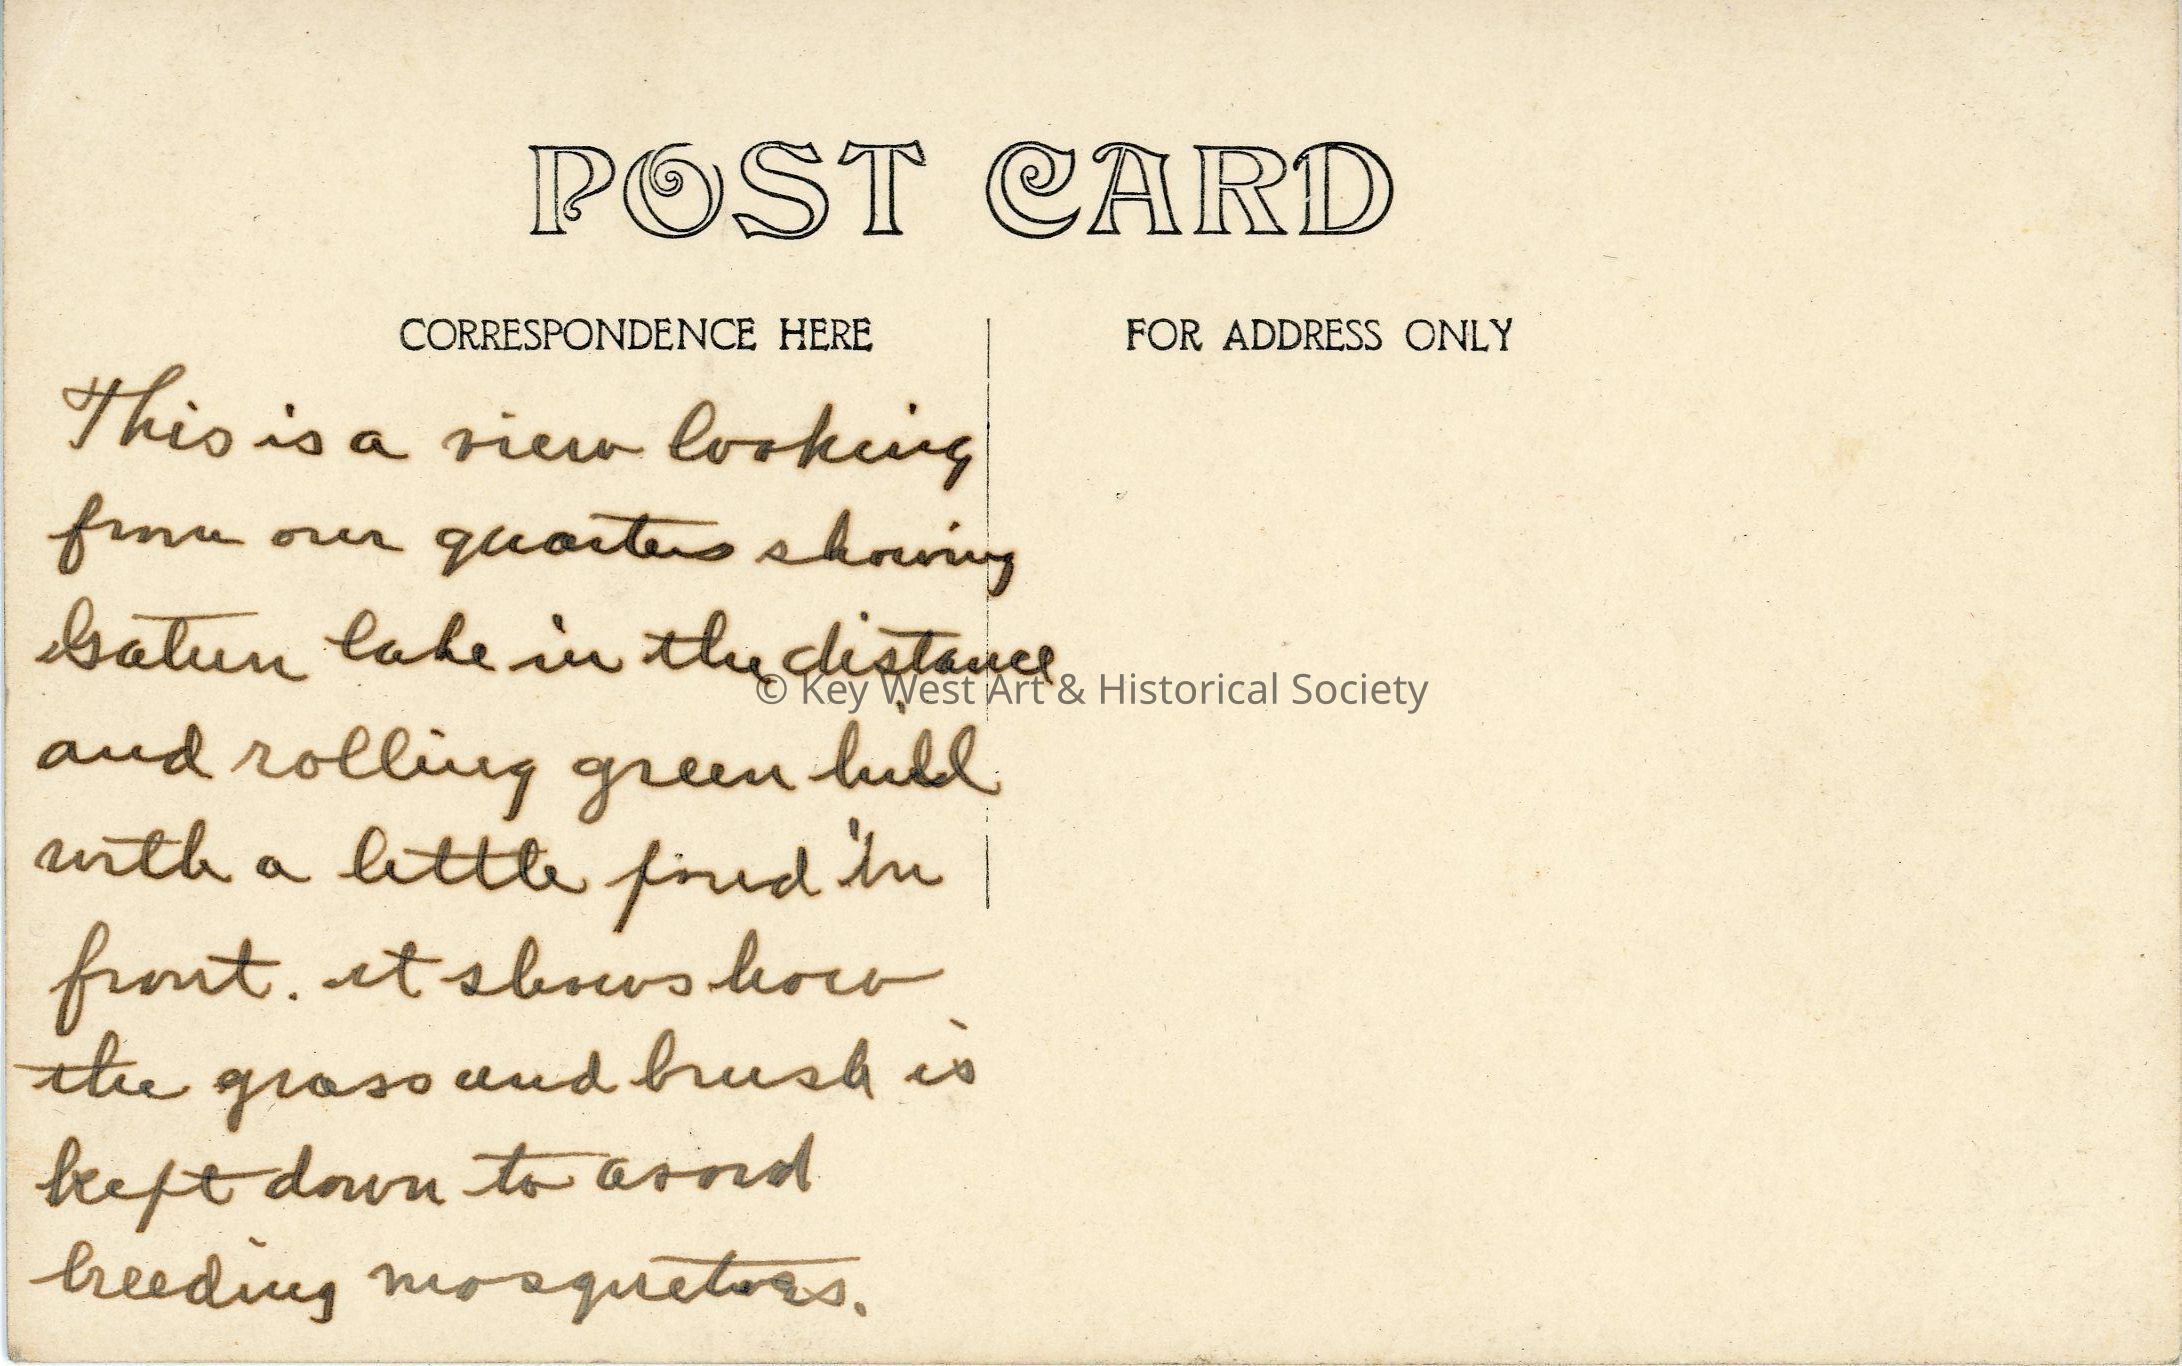 POST CARD
CORRESPONDENCE HERE
FOR ADDRESS ONLY
This is a view looking
from our quarters showing
Gatun lake in the distance
© Key West Art & Historical Society
and rolling green hill
with a little pond in
front. it shows how
the grass and brush is
kept down to avoid
breeding mosquetoes.